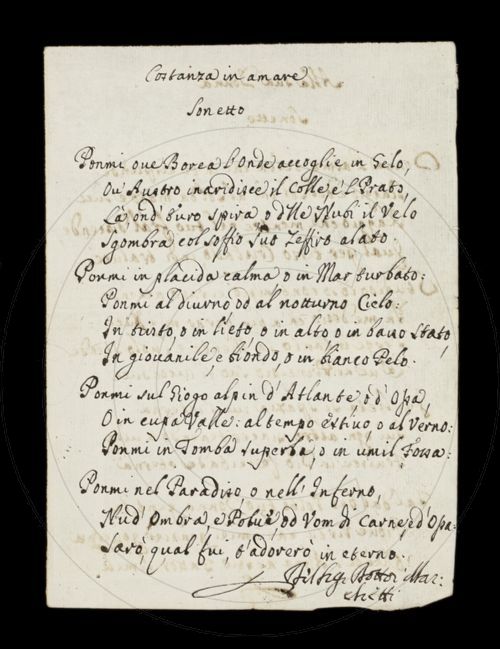 Costanza in amare
Sonetto
Ponmi oue Borea l'onde accoglie in Gelo,
Ou' Austro inaridisce il Colle e'l Prato,
Là ond' Euro spira o d'lle Nubi il Velo
Sgombra col soffio suo Zeffiro alato.
Ponmi in placida calma, o in Mar turbato:
Ponmi al diurno od al notturno Cielo:
In tristo, o in lieto o in alto, o in basso stato,
In giouanile, e biondo, o in bianco Pelo.
Ponmi sul Giogo alpin d'Atlante, od' Ossa,
O in cupa Valle: al tempo estiuo, o al Verno:
Ponmi in Tomba superba, o in umil Fossa:
Ponmi nel Paradiso, o nell' Inferno,
Nud' Ombra, e Polue, od Vom di Carne, ed' Ossa
Sarò, qual fui, t'adorerò in eterno.
Del Sig.r Dottor Mar:
chetti